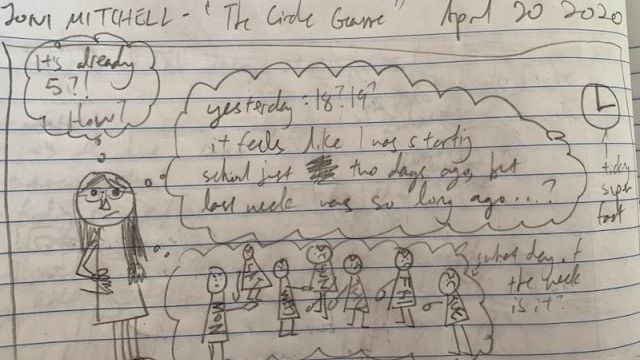 JONI MITCHELL - "The Circle Game" April 20 2020
It's already
5?!
How?
yesterday: 18? 19?
it feels like I was starting
school just two days ago, but
last week was so long ago...?
super
fast
what day of
the week
is it?
MON
FRI